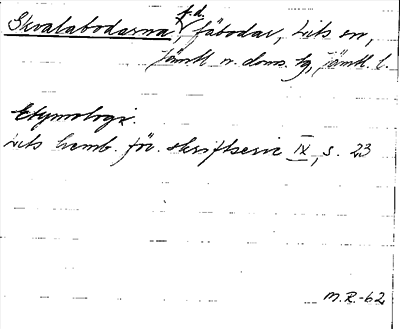 Skvalabodarna, f.d. fäbodar, Lits sn,
Jämtl. n. doms. tg, Jämtl. l.
Etymologi.
Lits hemb. för. skriftserie IX, s. 23
M.R.-62